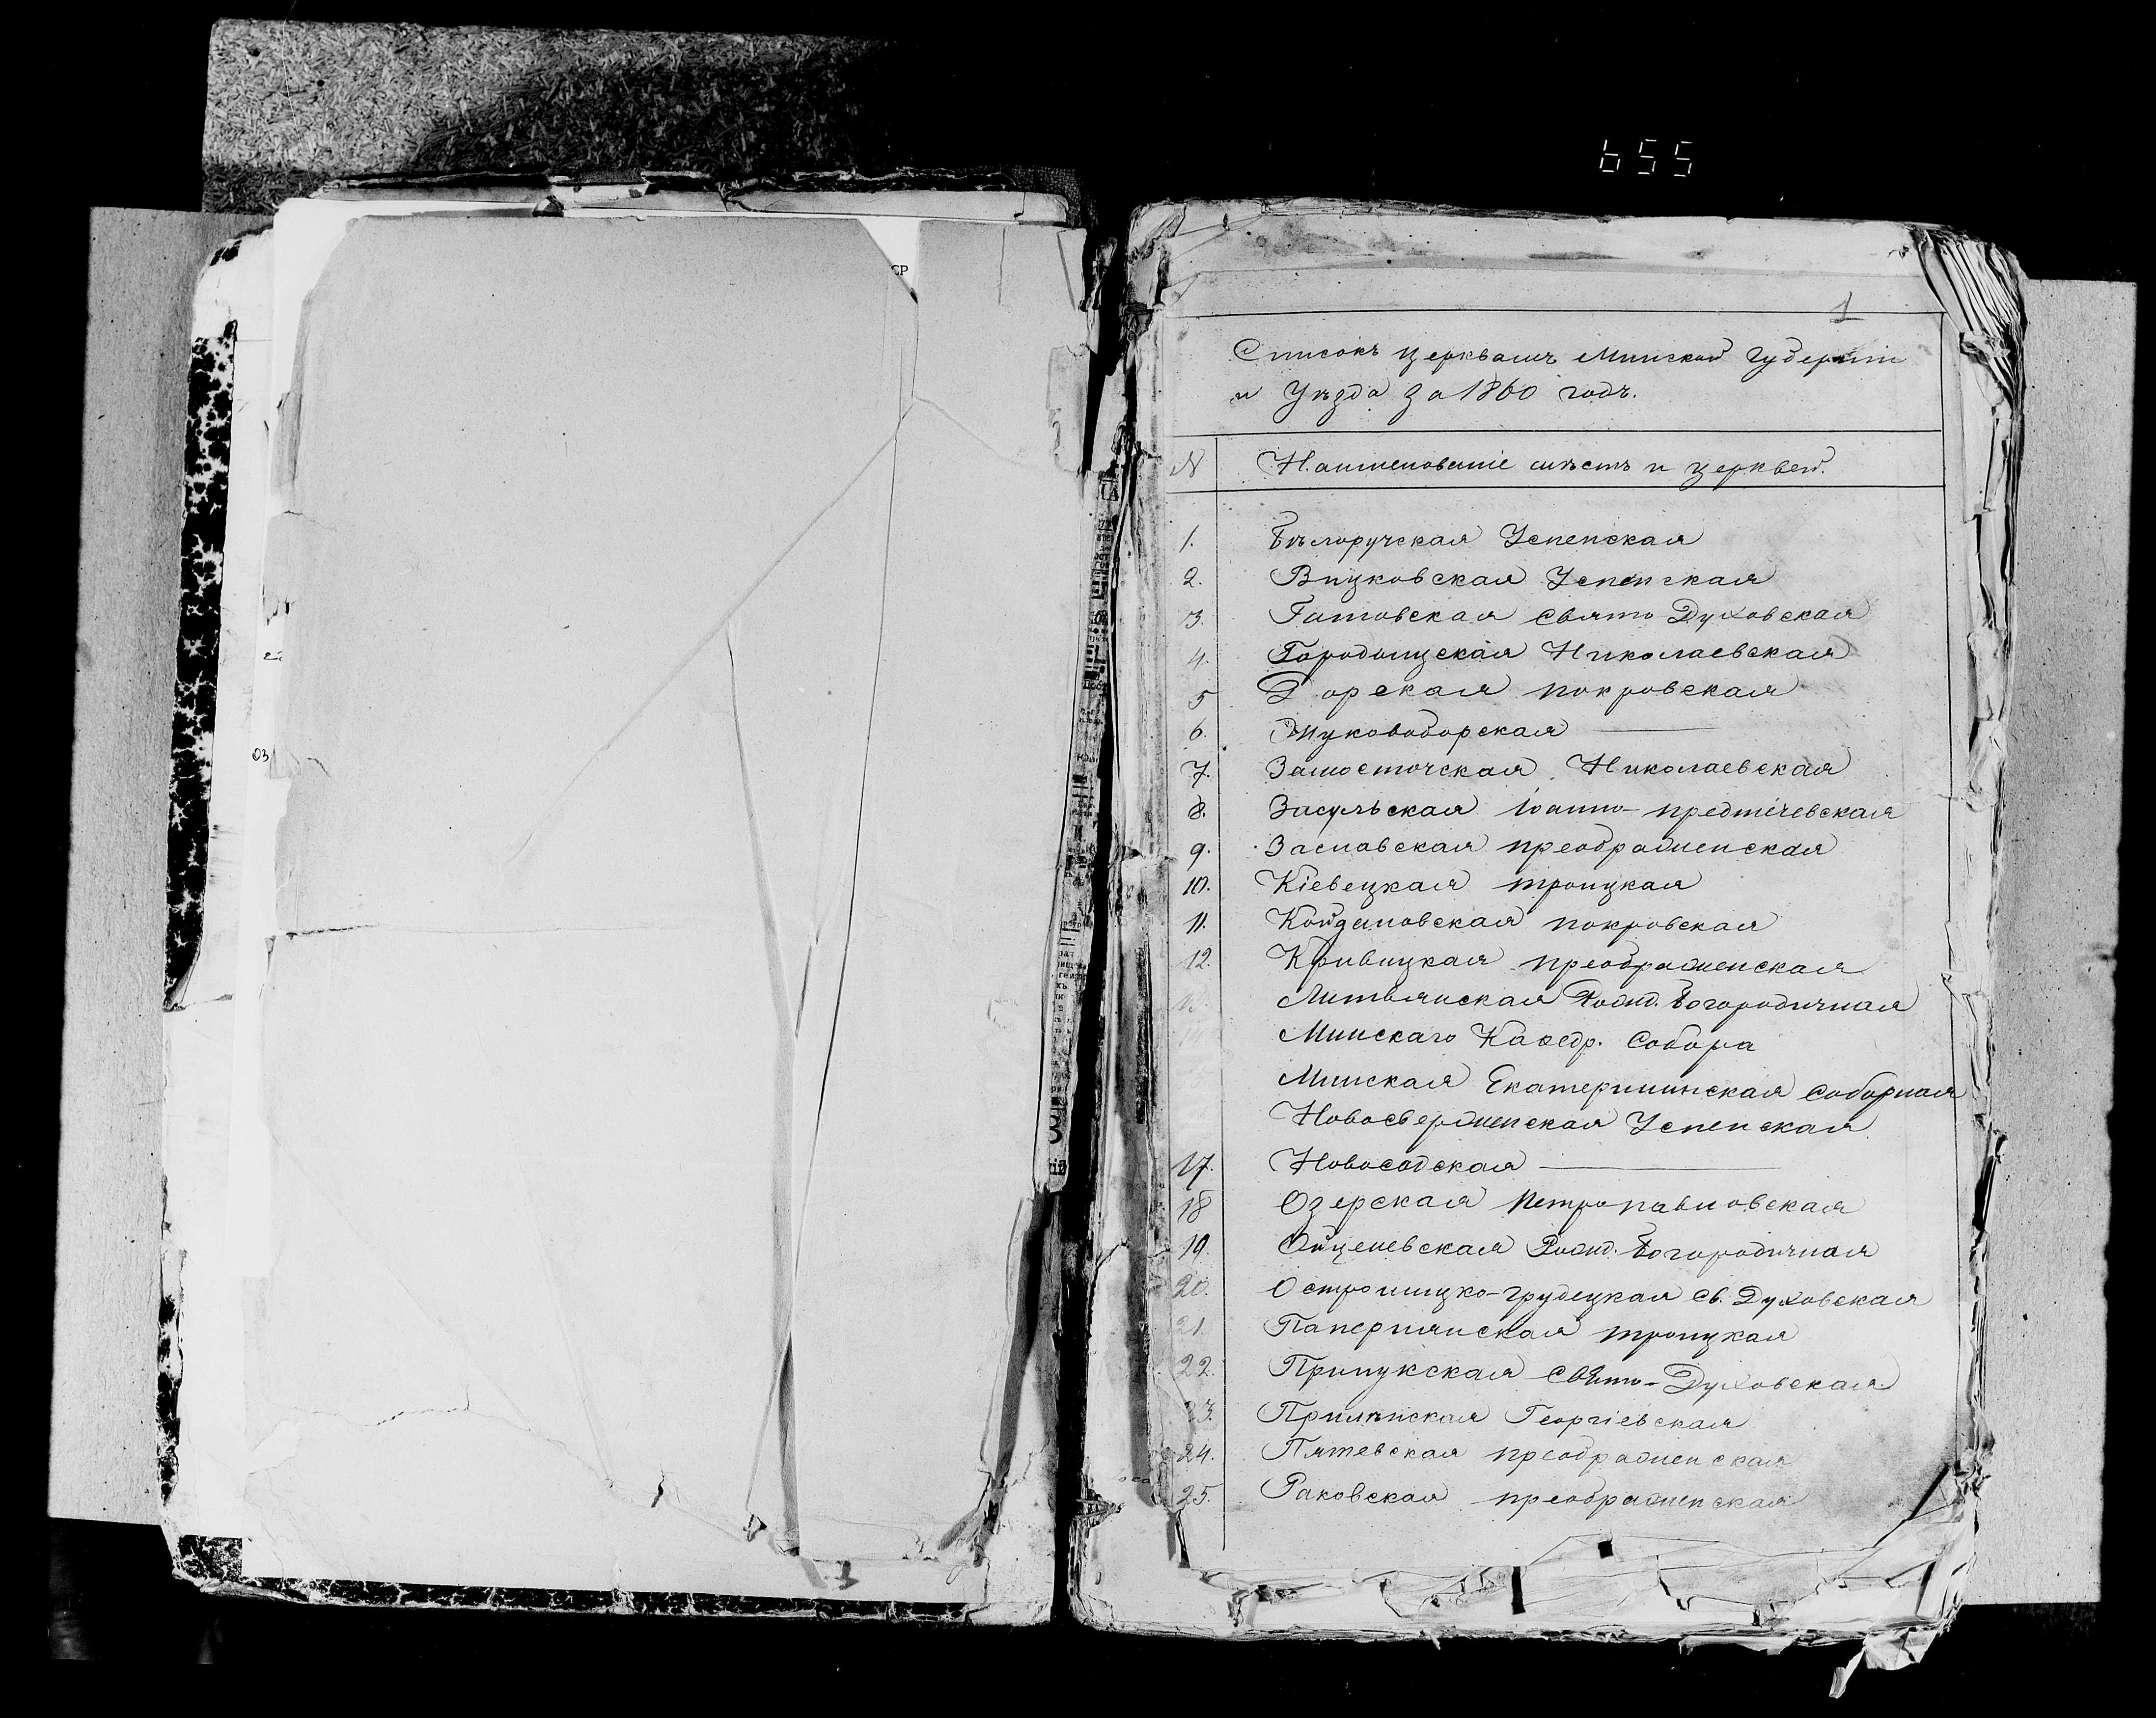 655
1
Списокъ церквамъ Минской Губерніи
и Уѣзда за 1860 годъ.
№ Наименованіе мѣстъ и церквей.
1. Бѣлоручская Успенская
2. Вицковская Успенская
3. Гатовская Свято Духовская
4. Городищская Николаевская
5 Дорская покровская
6. Жуковоборская ——
7. Замосточская Николаевская
8. Засульская Іоанно-предтечевская
9. Заславская преображенская
10. Кіевецкая троицкая
11. Койдановская покровская
12. Кривицкая преображенская
Литвянская Рожд. Богородичная
Минскаго Каѳедр. Собора
Минская Екатерининская Соборная
Новосверженская Успенская
17. Новосадская ——
18 Озерская Петропавловская
19. Ойцевская Рожд. Богородичная
20. Острошицко-грудецкая Св. Духовская
21 Папернянская троицкая
22. Прилукская Свято-Духовская
23. Прилѣпская Георгіевская
24. Пятевская преображенская
25. Раковская преображенская